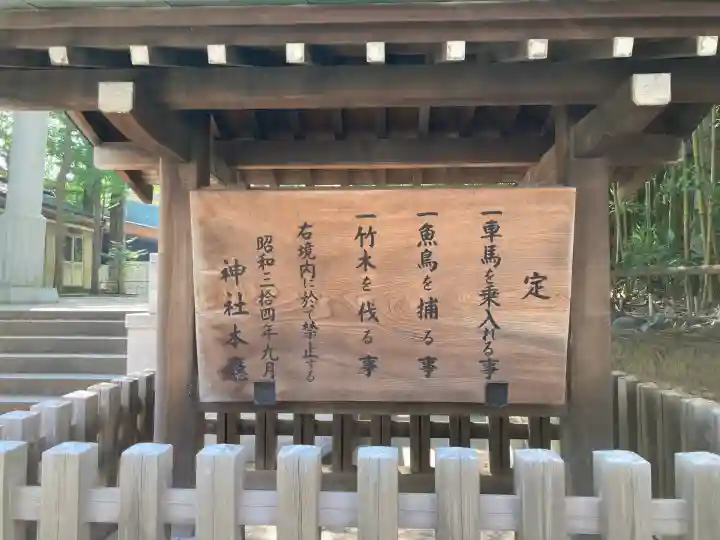 定
一車馬を乗入れる事
一魚鳥を捕る事
一竹木を伐る事
右境内に於て禁止する
昭和三拾四年九月
神社本廳